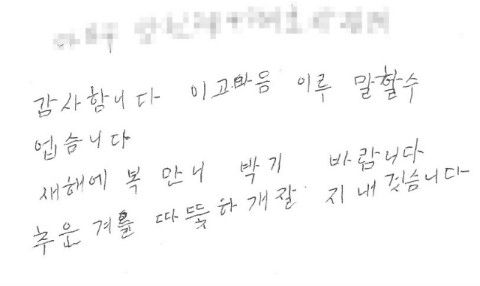 감사함니다 이고마음 이루 말할수
업슴니다
새해에 복 만니 박기 바랍니다
추운 겨울 따뜻하개잘 지내겟슴니다